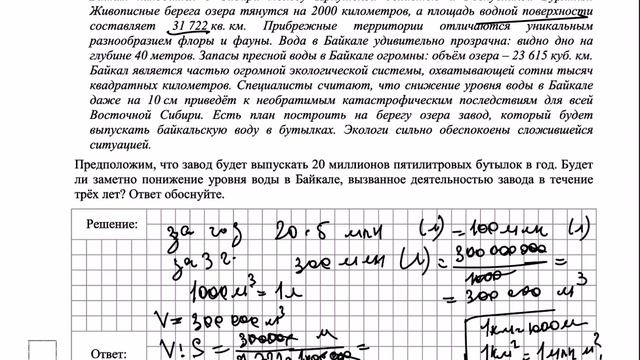 Живописные берега озера тянутся на 2000 километров, а площадь водной поверхности
составляет 31 722 кв. км. Прибрежные территории отличаются уникальным
разнообразием флоры и фауны. Вода в Байкале удивительно прозрачна: видно дно на
глубине 40 метров. Запасы пресной воды в Байкале огромны: объём озера – 23 615 куб. км.
Байкал является частью огромной экологической системы, охватывающей сотни тысяч
квадратных километров. Специалисты считают, что снижение уровня воды в Байкале
даже на 10 см приведёт к необратимым катастрофическим последствиям для всей
Восточной Сибири. Есть план построить на берегу озера завод, который будет
выпускать байкальскую воду в бутылках. Экологи сильно обеспокоены сложившейся
ситуацией.
Предположим, что завод будет выпускать 20 миллионов пятилитровых бутылок в год. Будет
ли заметно понижение уровня воды в Байкале, вызванное деятельностью завода в течение
трёх лет? Ответ обоснуйте.
Решение:
за год 20·5 млн (л)=100 млн (л)
за 3 г. 300 млн (л)= 300 000 000 / 1000 =
1000 м³=1л = 300 000 м³
V= 300 000 м³
1км=1000м
V:S= м 1км²=1млн м²
Ответ: